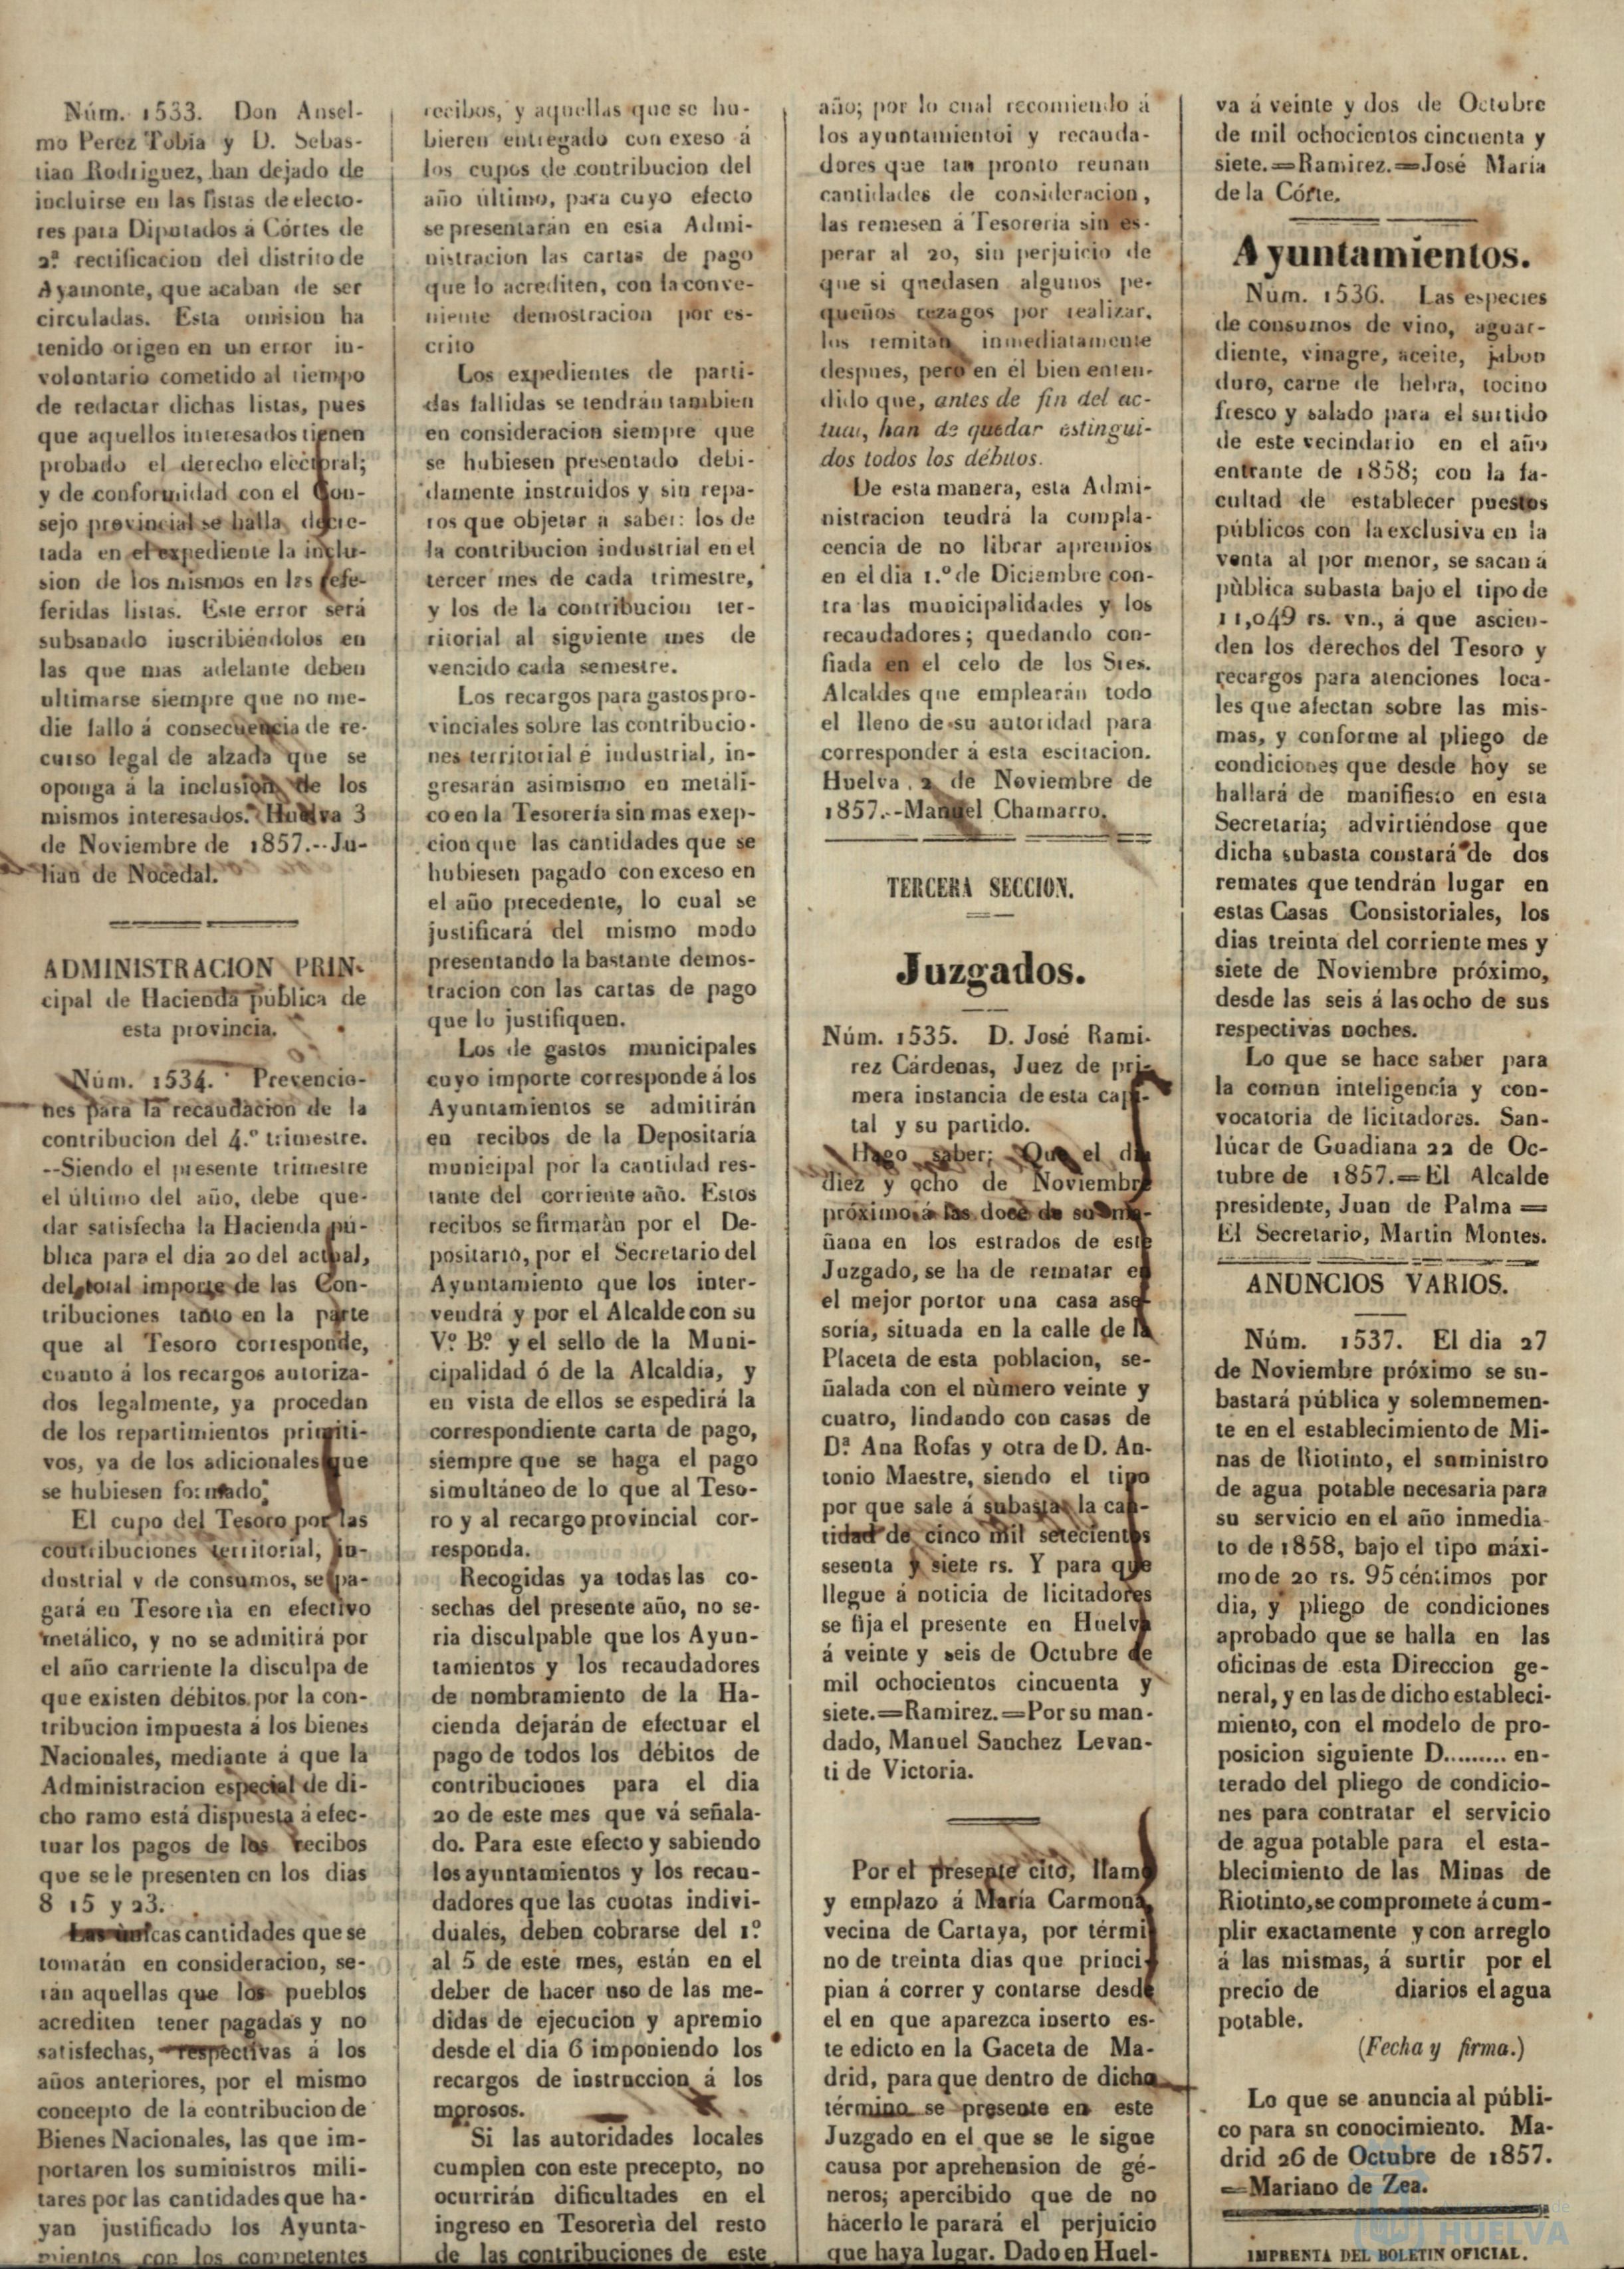 Núm. 1533. Don Ansel-
mo Perez Tobia y D. Sebas-
tian Rodriguez, han dejado de
incluirse en las listas de electo-
res para Diputados á Córtes de
2.ª rectificacion del distrito de
Ayamonte, que acaban de ser
circuladas. Esta omision ha
tenido origen en un error in-
voluntario cometido al tiempo
de redactar dichas listas, pues
que aquellos interesados tienen
probado el derecho electoral;
y de conformidad con el Con-
sejo provincial se halla decre-
tada en el expediente la inclu-
sion de los mismos en las refe-
feridas listas. Este error será
subsanado inscribiéndolos en
las que mas adelante deben
ultimarse siempre que no me-
die fallo á consecuencia de re-
curso legal de alzada que se
oponga á la inclusion de los
mismos interesados. Huelva 3
de Noviembre de 1857.--Ju-
lian de Nocedal.
ADMINISTRACION PRIN-
cipal de Hacienda pública de
esta provincia.
Núm. 1534. Prevencio-
nes para la recaudacion de la
contribucion del 4.º trimestre.
--Siendo el presente trimestre
el último del año, debe que-
dar satisfecha la Hacienda pú-
blica para el dia 20 del actual,
del total importe de las Con-
tribuciones tanto en la parte
que al Tesoro corresponde,
cuanto á los recargos autoriza-
dos legalmente, ya procedan
de los repartimientos primiti-
vos, ya de los adicionales que
se hubiesen formado.
El cupo del Tesoro por las
contribuciones territorial, in-
dustrial y de consumos, se pa-
gará en Tesoreria en efectivo
metálico, y no se admitirá por
el año carriente la disculpa de
que existen débitos por la con-
tribucion impuesta á los bienes
Nacionales, mediante á que la
Administracion especial de di-
cho ramo está dispuesta á efec-
tuar los pagos de los recibos
que se le presenten en los dias
8 15 y 23.
Las únicas cantidades que se
tomarán en consideracion, se-
rán aquellas que los pueblos
acrediten tener pagadas y no
satisfechas, respectivas á los
años anteriores, por el mismo
concepto de la contribucion de
Bienes Nacionales, las que im-
portaren los suministros mili-
tares por las cantidades que ha-
yan justificado los Ayunta-
mientos con los competentes
recibos, y aquellas que se hu-
bieren entregado con exeso á
los cupos de contribucion del
año último, para cuyo efecto
se presentarán en esta Admi-
nistracion las cartas de pago
que lo acrediten, con la conve-
niente demostracion por es-
crito
Los expedientes de parti-
das fallidas se tendrán tambien
en consideracion siempre que
se hubiesen presentado debi-
damente instruidos y sin repa-
ros que objetar á saber: los de
la contribucion industrial en el
tercer mes de cada trimestre,
y los de la contribucion ter-
ritorial al siguiente mes de
vencido cada semestre.
Los recargos para gastos pro-
vinciales sobre las contribucio-
nes territorial é industrial, in-
gresarán asimismo en metáli-
co en la Tesorería sin mas exep-
cion que las cantidades que se
hubiesen pagado con exceso en
el año precedente, lo cual se
justificará del mismo modo
presentando la bastante demos-
tracion con las cartas de pago
que lo justifiquen.
Los de gastos municipales
cuyo importe corresponde á los
Ayuntamientos se admitirán
en recibos de la Depositaría
municipal por la cantidad res-
tante del corriente año. Estos
recibos se firmarán por el De-
positario, por el Secretario del
Ayuntamiento que los inter-
vendrá y por el Alcalde con su
V.º B.º y el sello de la Muni-
cipalidad ó de la Alcaldia, y
en vista de ellos se espedirá la
correspondiente carta de pago,
siempre que se haga el pago
simultáneo de lo que al Teso-
ro y al recargo provincial cor-
responda.
Recogidas ya todas las co-
sechas del presente año, no se-
ria disculpable que los Ayun-
tamientos y los recaudadores
de nombramiento de la Ha-
cienda dejarán de efectuar el
pago de todos los débitos de
contribuciones para el dia
20 de este mes que vá señala-
do. Para este efecto y sabiendo
los ayuntamientos y los recau-
dadores que las cuotas indivi-
duales, deben cobrarse del 1.º
al 5 de este mes, están en el
deber de hacer uso de las me-
didas de ejecucion y apremio
desde el dia 6 imponiendo los
recargos de instruccion á los
morosos.
Si las autoridades locales
cumplen con este precepto, no
ocurrirán dificultades en el
ingreso en Tesorerìa del resto
de las contribuciones de este
año; por lo cual recomiendo á
los ayuntamientoi y recauda-
dores que tan pronto reunan
cantidades de consideracion,
las remesen á Tesoreria sin es-
perar al 20, sin perjuicio de
que si quedasen algunos pe-
queños rezagos por realizar,
los remitan inmediatamente
despues, pero en el bien enten-
dido que, antes de fin del ac-
tual, han de quedar estingui-
dos todos los débitos.
De esta manera, esta Admi-
nistracion tendrá la compla-
cencia de no librar apremios
en el dia 1.º de Diciembre con-
tra las municipalidades y los
recaudadores; quedando con-
fiada en el celo de los Sres.
Alcaldes que emplearán todo
el lleno de su autoridad para
corresponder á esta escitacion.
Huelva 2 de Noviembre de
1857.--Manuel Chamarro.
TERCERA SECCION.
Juzgados.
Núm. 1535. D. José Rami-
rez Cárdenas, Juez de pri-
mera instancia de esta capi-
tal y su partido.
Hago saber; Que el dia
diez y ocho de Noviembre
próximo á las doce de su ma-
ñana en los estrados de este
Juzgado, se ha de rematar en
el mejor portor una casa ase-
soría, situada en la calle de la
Placeta de esta poblacion, se-
ñalada con el nùmero veinte y
cuatro, lindando con casas de
D.ª Ana Rofas y otra de D. An-
tonio Maestre, siendo el tipo
por que sale á subasta la can-
tidad de cinco mil setecientos
sesenta y siete rs. Y para que
llegue á noticia de licitadores
se fija el presente en Huelva
á veinte y seis de Octubre de
mil ochocientos cincuenta y
siete.=Ramirez.=Por su man-
dado, Manuel Sanchez Levan-
ti de Victoria.
Por el presente cito, llamo
y emplazo á María Carmona,
vecina de Cartaya, por térmi-
no de treinta dias que princi-
pian á correr y contarse desde
el en que aparezca inserto es-
te edicto en la Gaceta de Ma-
drid, para que dentro de dicho
término se presente en este
Juzgado en el que se le sigue
causa por aprehension de gé-
neros; apercibido que de no
hacerlo le parará el perjuicio
que haya lugar. Dado en Huel-
va á veinte y dos de Octubre
de mil ochocientos cincuenta y
siete.=Ramirez.=José Maria
de la Córte.
Ayuntamientos.
Núm. 1536. Las especies
de consumos de vino, aguar-
diente, vinagre, aceite, jabon
duro, carne de hebra, tocino
fresco y salado para el surtido
de este vecindario en el año
entrante de 1858; con la fa-
cultad de establecer puestos
públicos con la exclusiva en la
venta al por menor, se sacan á
pùblica subasta bajo el tipo de
11,049 rs. vn., á que ascien-
den los derechos del Tesoro y
recargos para atenciones loca-
les que afectan sobre las mis-
mas, y conforme al pliego de
condiciones que desde hoy se
hallará de manifiesto en esta
Secretaría; advirtiéndose que
dicha subasta constará de dos
remates que tendrán lugar en
estas Casas Consistoriales, los
dias treinta del corriente mes y
siete de Noviembre próximo,
desde las seis á las ocho de sus
respectivas noches.
Lo que se hace saber para
la comun inteligencía y con-
vocatoria de licitadores. San-
lúcar de Guadiana 22 de Oc-
tubre de 1857.=El Alcalde
presidente, Juan de Palma =
El Secretario, Martin Montes.
ANUNCIOS VARIOS.
Núm. 1537. El dia 27
de Noviembre próximo se su-
bastará pública y solemnemen-
te en el establecimiento de Mi-
nas de Riotinto, el suministro
de agua potable necesaria para
su servicio en el año inmedia-
to de 1858, bajo el tipo máxi-
mo de 20 rs. 95 céntimos por
dia, y pliego de condiciones
aprobado que se halla en las
oficinas de esta Direccion ge-
neral, y en las de dicho estableci-
miento, con el modelo de pro-
posicion siguiente D......... en-
terado del pliego de condicio-
nes para contratar el servicio
de agua potable para el esta-
blecimiento de las Minas de
Riotinto, se compromete á cum-
plir exactamente y con arreglo
á las mismas, á surtir por el
precio de diarios el agua
potable.
(Fecha y firma.)
Lo que se anuncia al públi-
co para sn conocimiento. Ma-
drid 26 de Octubre de 1857.
=Mariano de Zea.
IMPRENTA DEL BOLETIN OFICIAL.
de
HUELVA